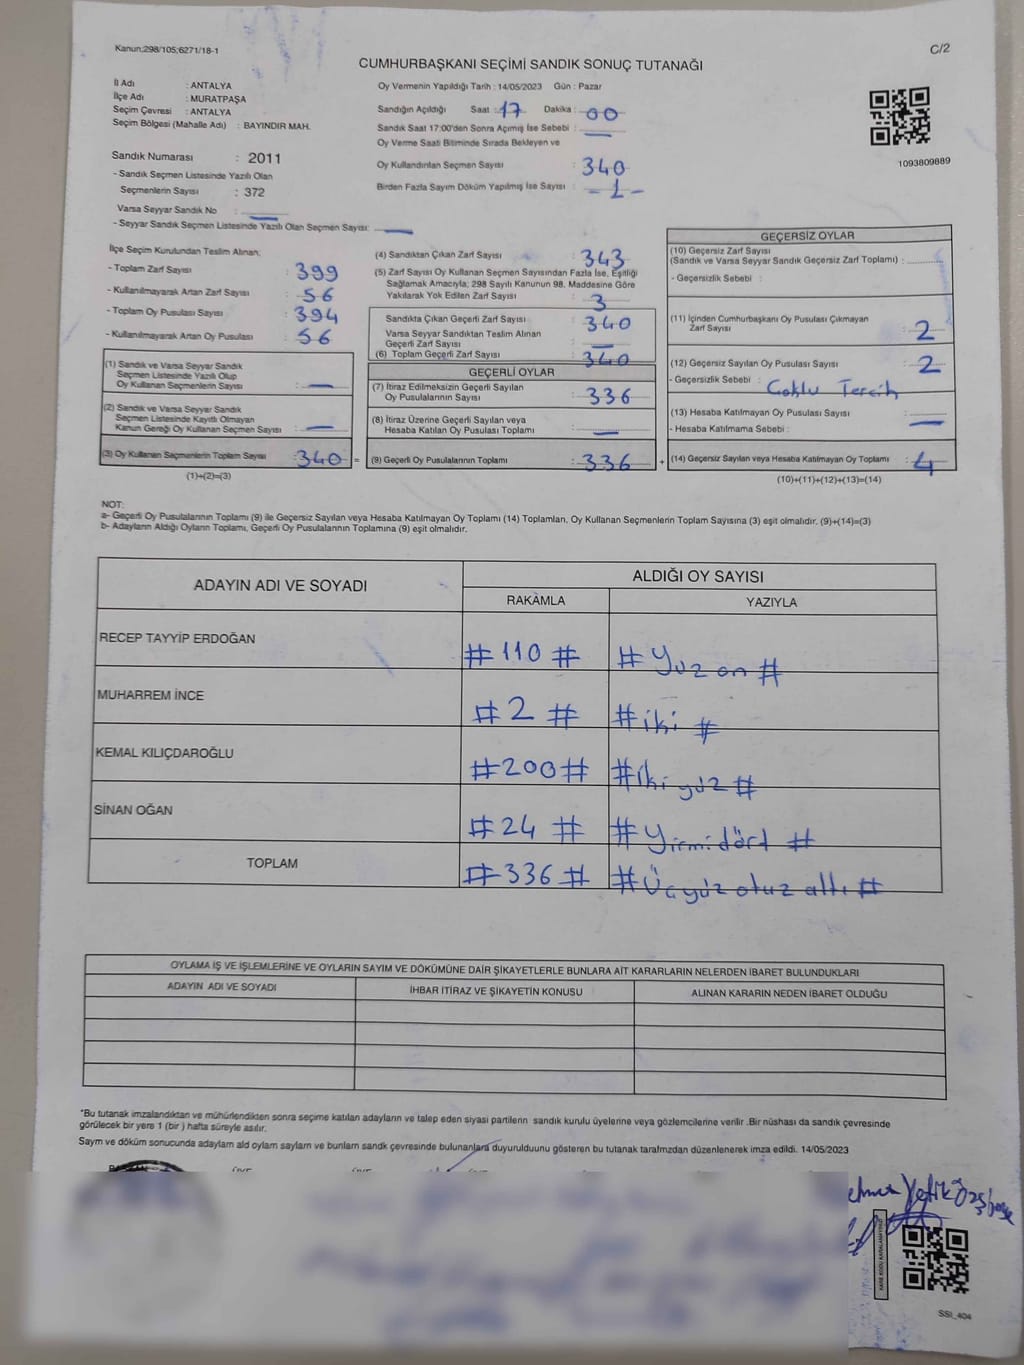 Kanun:298/105;6271/18-1
C/2
CUMHURBAŞKANI SEÇİMİ SANDIK SONUÇ TUTANAĞI
İl Adı : ANTALYA
İlçe Adı : MURATPAŞA
Seçim Çevresi : ANTALYA
Seçim Bölgesi (Mahalle Adı) : BAYINDIR MAH.
Sandık Numarası : 2011
- Sandık Seçmen Listesinde Yazılı Olan
Seçmenlerin Sayısı : 372
Varsa Seyyar Sandık No :
- Seyyar Sandık Seçmen Listesinde Yazılı Olan Seçmen Sayısı:
Oy Vermenin Yapıldığı Tarih : 14/05/2023 Gün : Pazar
Sandığın Açıldığı Saat : 17 Dakika : 00
Sandık Saat 17:00'den Sonra Açımış İse Sebebi :
Oy Verme Saati Bitiminde Sırada Bekleyen ve
Oy Kullandırılan Seçmen Sayısı : 340
Birden Fazla Sayım Döküm Yapılmış İse Sayısı : - 1 -
1093809889
İlçe Seçim Kurulundan Teslim Alınan:
- Toplam Zarf Sayısı : 399
- Kullanılmayarak Artan Zarf Sayısı : 56
- Toplam Oy Pusulası Sayısı : 394
- Kullanılmayarak Artan Oy Pusulası : 56
(1) Sandık ve Varsa Seyyar Sandık
Seçmen Listesinde Yazılı Olup
Oy Kullanan Seçmenlerin Sayısı :
(2) Sandık ve Varsa Seyyar Sandık
Seçmen Listesinde Kayıtlı Olmayan
Kanun Gereği Oy Kullanan Seçmen Sayısı :
(3) Oy Kullanan Seçmenlerin Toplam Sayısı : 340 =
(1)+(2)=(3)
(4) Sandıktan Çıkan Zarf Sayısı : 343
(5) Zarf Sayısı Oy Kullanan Seçmen Sayısından Fazla İse, Eşitliği
Sağlamak Amacıyla; 298 Sayılı Kanunun 98. Maddesine Göre
Yakılarak Yok Edilen Zarf Sayısı : 3
Sandıkta Çıkan Geçerli Zarf Sayısı : 340
Varsa Seyyar Sandıktan Teslim Alınan
Geçerli Zarf Sayısı :
(6) Toplam Geçerli Zarf Sayısı : 340
GEÇERLİ OYLAR
(7) İtiraz Edilmeksizin Geçerli Sayılan
Oy Pusulalarının Sayısı : 336
(8) İtiraz Üzerine Geçerli Sayılan veya
Hesaba Katılan Oy Pusulası Toplamı :
(9) Geçerli Oy Pusulalarının Toplamı : 336 +
GEÇERSİZ OYLAR
(10) Geçersiz Zarf Sayısı
(Sandık ve Varsa Seyyar Sandık Geçersiz Zarf Toplamı) :
- Geçersizlik Sebebi :
(11) İçinden Cumhurbaşkanı Oy Pusulası Çıkmayan
Zarf Sayısı : 2
(12) Geçersiz Sayılan Oy Pusulası Sayısı : 2
- Geçersizlik Sebebi : Çoklu Tercih
(13) Hesaba Katılmayan Oy Pusulası Sayısı :
- Hesaba Katılmama Sebebi :
(14) Geçersiz Sayılan veya Hesaba Katılmayan Oy Toplamı : 4
(10)+(11)+(12)+(13)=(14)
NOT:
a- Geçerli Oy Pusulalarının Toplamı (9) ile Geçersiz Sayılan veya Hesaba Katılmayan Oy Toplamı (14) Toplamları, Oy Kullanan Seçmenlerin Toplam Sayısına (3) eşit olmalıdır. (9)+(14)=(3)
b- Adayların Aldığı Oyların Toplamı, Geçerli Oy Pusulalarının Toplamına (9) eşit olmalıdır.
ADAYIN ADI VE SOYADI
ALDIĞI OY SAYISI
RAKAMLA YAZIYLA
RECEP TAYYİP ERDOĞAN # 110 # # Yüz on #
MUHARREM İNCE # 2 # # iki #
KEMAL KILIÇDAROĞLU # 200 # # iki yüz #
SİNAN OĞAN # 24 # # Yirmi dört #
TOPLAM # 336 # # Üçyüz otuz altı #
OYLAMA İŞ VE İŞLEMLERİNE VE OYLARIN SAYIM VE DÖKÜMÜNE DAİR ŞİKAYETLERLE BUNLARA AİT KARARLARIN NELERDEN İBARET BULUNDUKLARI
ADAYIN ADI VE SOYADI İHBAR İTİRAZ VE ŞİKAYETİN KONUSU ALINAN KARARIN NEDEN İBARET OLDUĞU
*Bu tutanak imzalandıktan ve mühürlendikten sonra seçime katılan adayların ve talep eden siyasi partilerin sandık kurulu üyelerine veya gözlemcilerine verilir .Bir nüshası da sandık çevresinde
görülecek bir yere 1 (bir ) hafta süreyle asılır.
Sayım ve döküm sonucunda adayların ald oyların sayların ve bunların sandk çevresinde bulunanlara duyurulduunu gösteren bu tutanak tarafmzdan düzenlenerek imza edildi. 14/05/2023
SSI_404